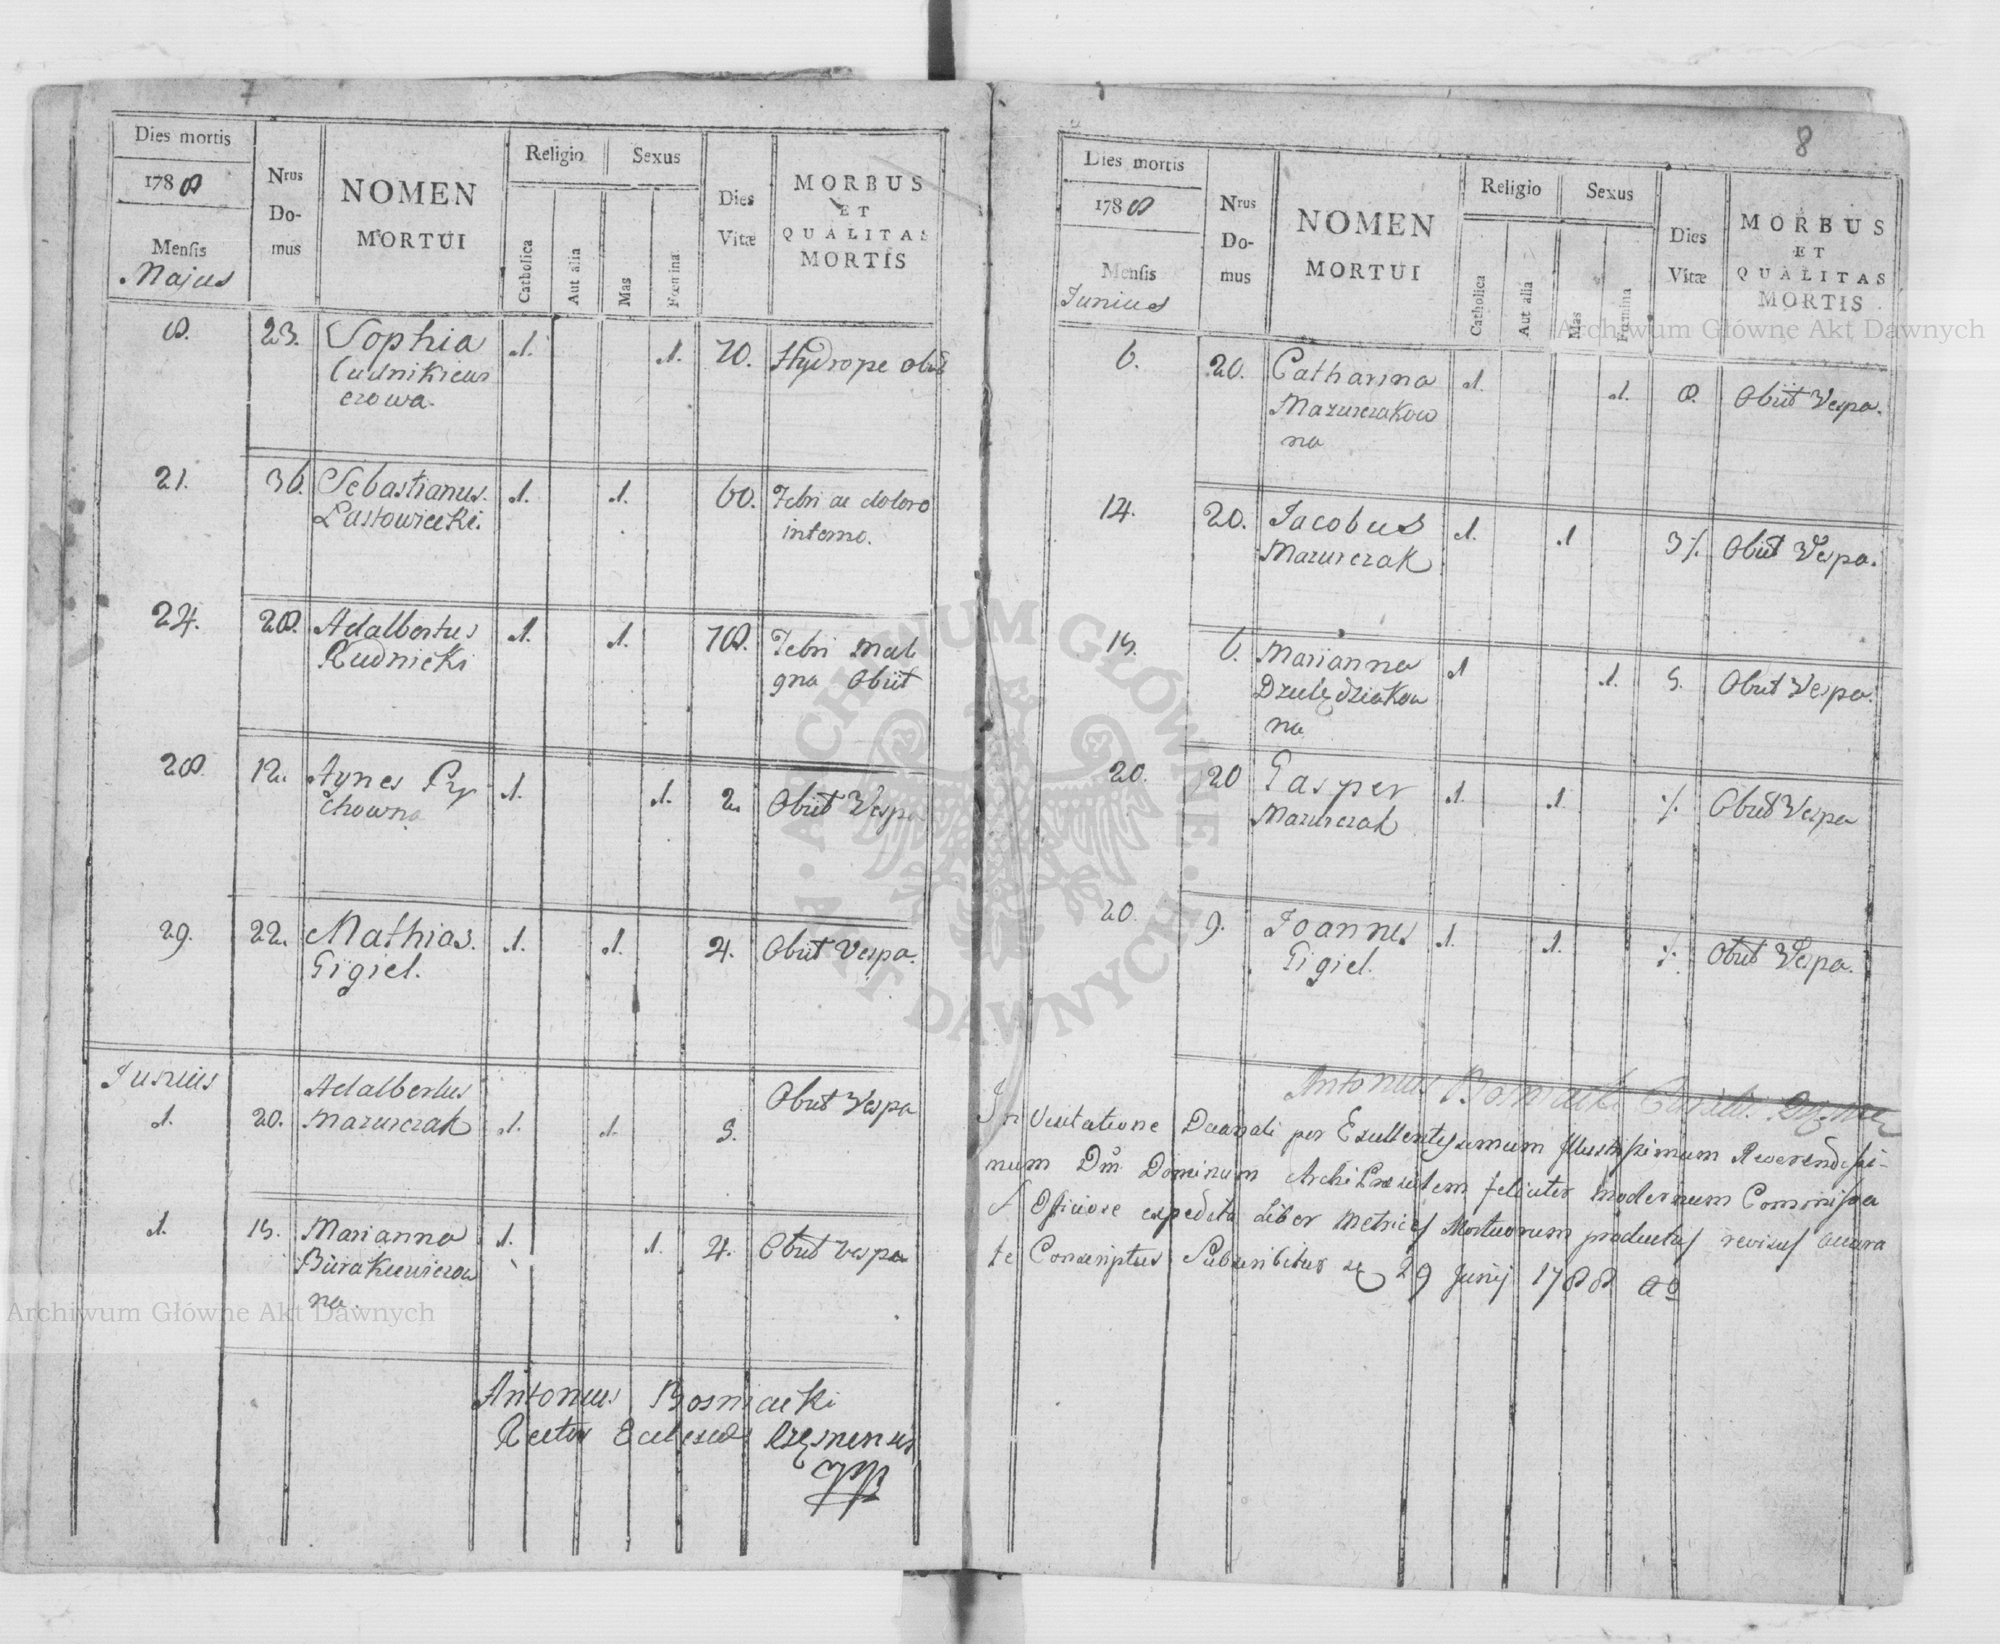 7
Dies mortis
1788
Mensis
Majus
Nrus Do-mus
NOMEN
MORTUI
Religio
Sexus
Catholica
Aut alia
Mas
Fœmina
Dies
Vitæ
MORBUS
ET
QUALITAS
MORTIS
8. 23. Sophia 1. 1. 70. Hydrope obiit
Cudnikiewi
czowa.
21. 36. Sebastianus 1. 1. 60. Febri ac dolore
Lastowiecki. interno.
24. 28. Adalbertus 1. 1. 78. Febri mali
Rudnicki gna Obiit
28. 12. Agnes Pry 1. 1. 2. Obiit Vespa
chowna
29. 22. Mathias. 1. 1. 4. Obiit Vespa.
Gigiel.
Junius
1. 20. Adalbertus Obiit Vespa
Mazurczak 1. 1. 5.
1. 15. Marianna 1. 1. 4. Obiit Vespa
Burakiewiczow
na.
Antonius Bosniacki
Rector Ecclesiae
8
Dies mortis
1788
Mensis
Junius
Nrus Do-mus
NOMEN
MORTUI
Religio
Sexus
Catholica
Aut alia
Mas
Fœmina
Dies
Vitæ
MORBUS
ET
QUALITAS
MORTIS
6. 20. Catharina 1. 1. 8. Obiit Vespa.
Mazurczakow
na
14. 20. Jacobus 1. 1 3/. Obiit Vespa.
Mazurczak
15. 6. Marianna 1 1. 5. Obiit Vespa.
Dzulędziakow
na
20. 20 Gasper 1. 1. /. Obiit Vespa
Mazurczak
20. 9. Joannes 1. 1. /. Obiit Vespa.
Gigiel.
Antonius Bosniacki
In Visitatione Decanali per Excellentissimum Illustrissimum Reverendissi-
mum Dm Dominum Archi Praesulem feliciter modernum Commissa
Officiose expedita Liber Metrices Mortuorum productus revisus accura
te Conscriptus Subscribitur 29 Junij 1788 ao
Archiwum Główne Akt Dawnych
Archiwum Główne Akt Dawnych
ARCHIWUM GŁÓWNE · AKT DAWNYCH ·